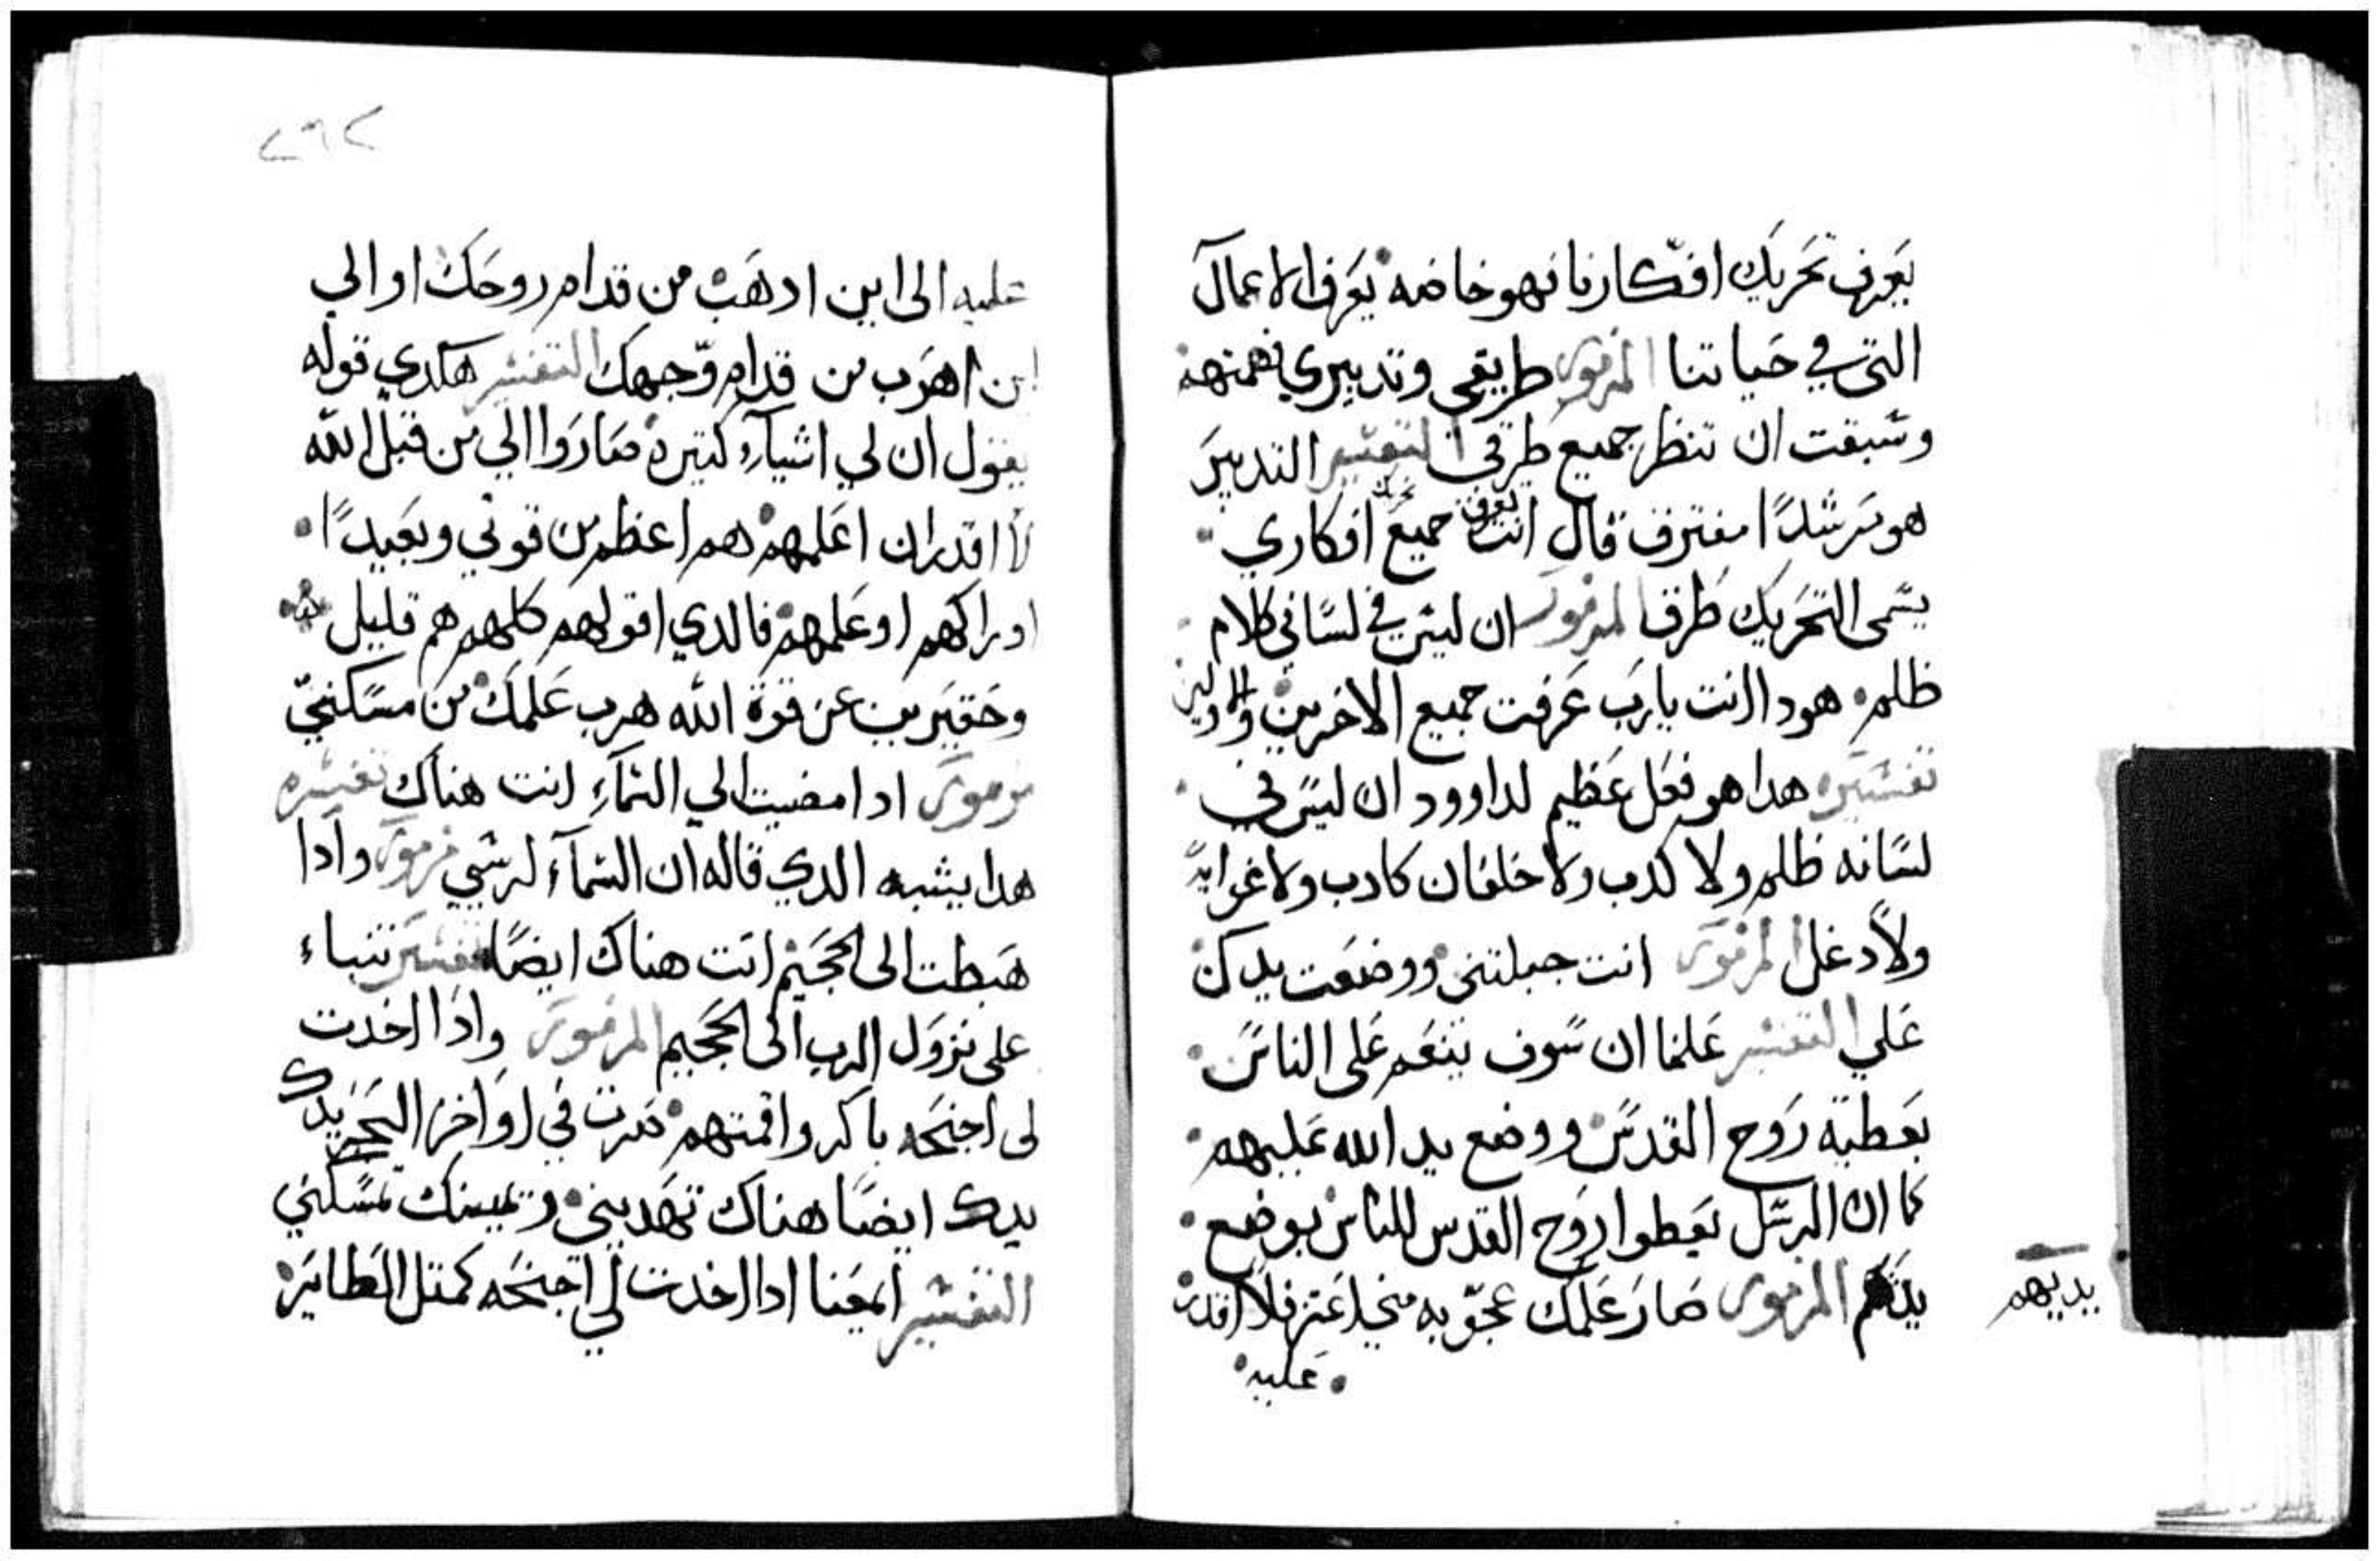 يعرف تحريك افكارنا فهو خاصه يعرف الاعمال
التي في حياتنا المزمور طريقي وتدبيري فهمته
وسبقت ان تنظر جميع طرقي التفسير التدبير
هو مرشدًا مفترق قال انت تعرف جميع تحرك افكاري
يسمى التحريك طرق المزمور ان ليس في لساني كلام
ظلم هودا انت يارب عرفت جميع الاخرين والاولين
تفسيره هدا هو فعل عظيم لداوود ان ليس في
لسانه ظلم ولا كدب ولا حلفان كادب ولا غوايه
ولا دغل المزمور انت جبلتني ووضعت يدك
علي التفسير علمنا ان سوف ينعم على الناس
بعطية روح القدس ووضع يد الله عليهم
كما ان الرسل يعطوا روح القدس للناس بوضع
يدهم المزمور صار علمك عجوبه مني اعتز فلا اقدر
يديهم
عليه
٢٩٢
عليه الى اين ادهب من قدام روحك او الي
اين اهرب من قدام وجهك التفسير هكدي قوله
يقول ان لي اشياء كتيرة صاروا الي من قبل الله
لا اقدر ان اعلمهم هم اعظم من قوتي وبعيدًا
ادراكهم او علمهم فالدي اقولهم كلهم هم قليل
وحقيرين عن قوة الله هرب علمك من مسكنتي
مزمور ادا مضيت الي السماء انت هناك تفسيره
هدا يشبه الدي قاله ان السماء كرسي مزمور وادا
هبطت الى الجحيم انت هناك ايضًا تفسير تنباء
على نزول الرب الى الجحيم المزمور وادا اخدت
لى اجنحه باكر واقمتهم صرت في اواخر البحر يدك
يدك ايضًا هناك تهديني ويمينك تمسكني
التفسير المعنا ادا اخدت لي اجنحه كمتل الطاير